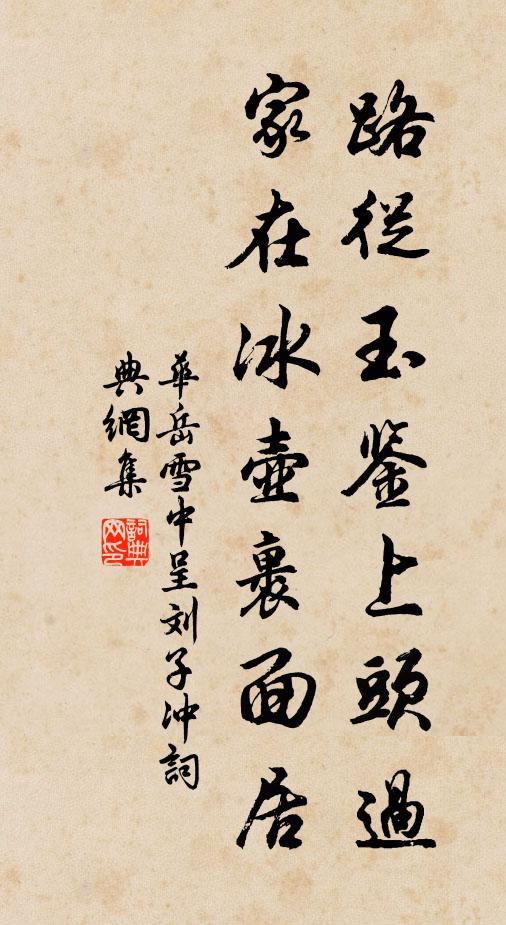 路從玉鉴上頭過
家在冰壺裏面居
華岳雪中呈刘子冲詞
典網集
詞典网印